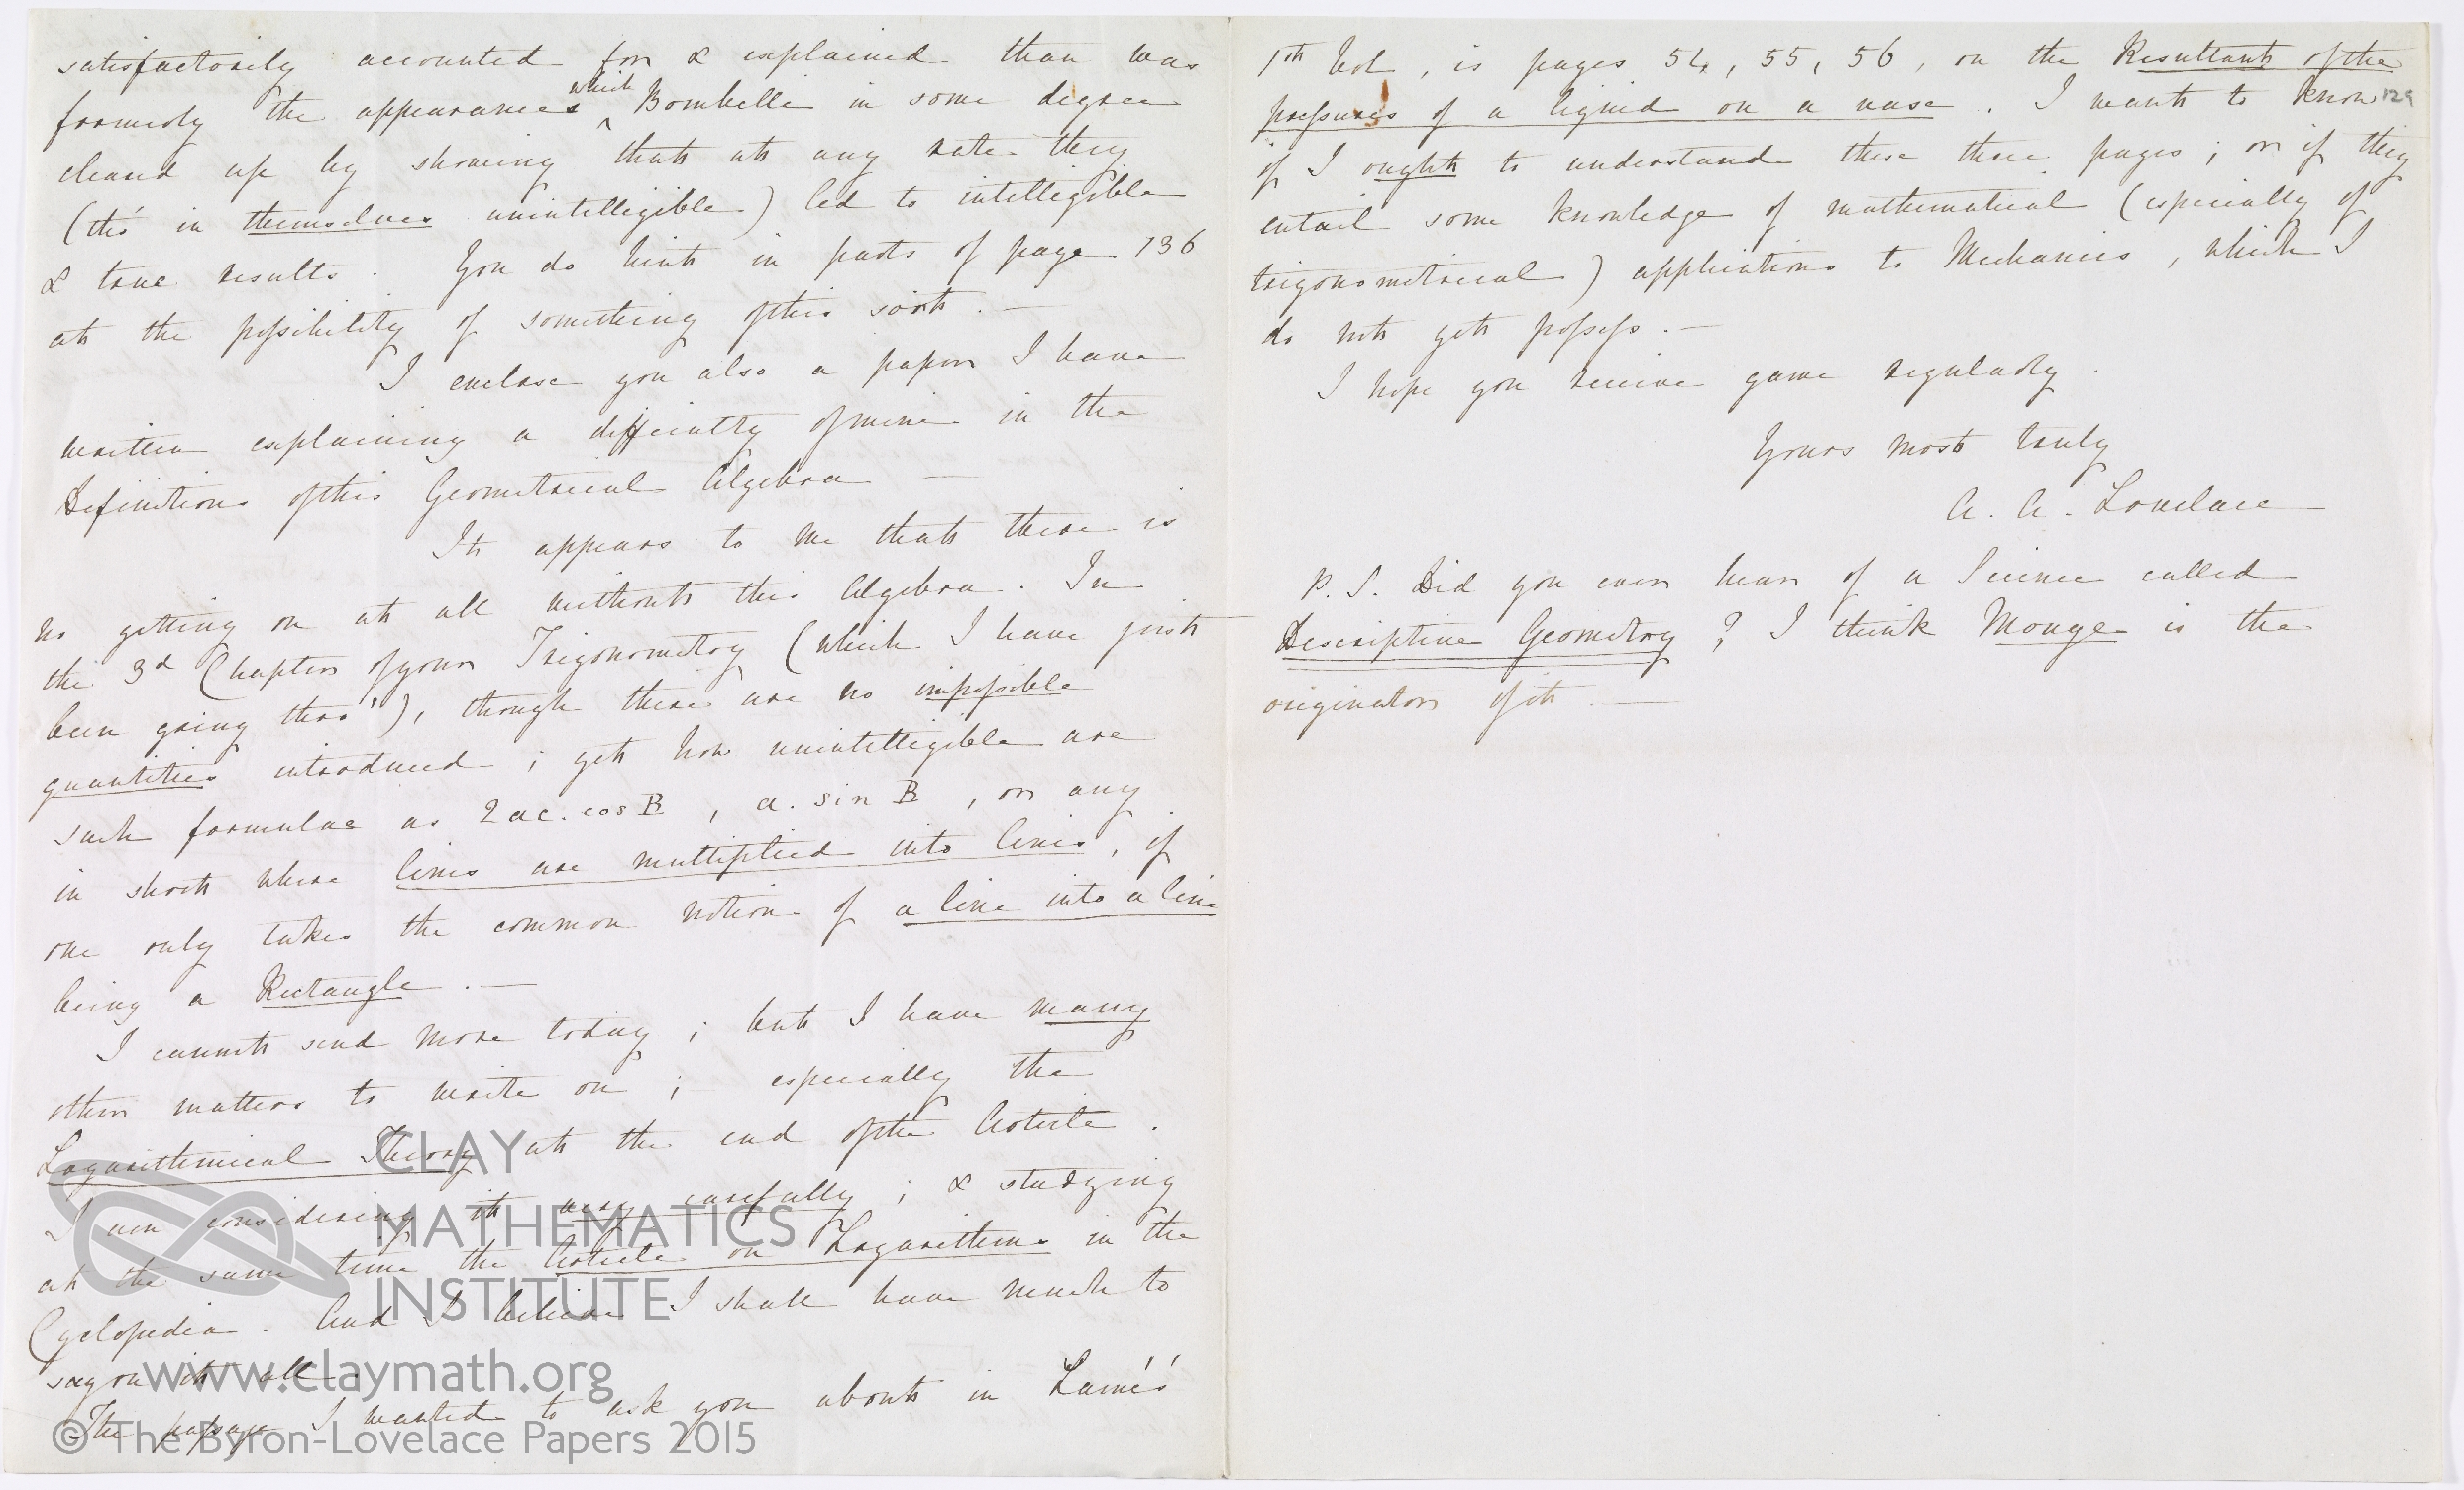 satisfactorily accounted for & explained than was
formerly the appearances which Bombelli in some degree
cleared up by showing that at any rate they
(tho' in themselves unintelligible) led to intelligible
& true results. You do hint in parts of page 136
at the possibility of something of this sort.—
I enclose you also a paper I have
written explaining a difficulty of mine in the
Definitions of this Geometrical Algebra.—
It appears to me that there is
no getting on at all without this Algebra. In
the 3d Chapter of your Trigonometry (which I have just
been going thro'), though there are no impossible
quantities introduced; yet how unintelligible are
such formulae as 2ac.cos B, a.sin B, or any
in short where lines are multiplied into lines, if
one only takes the common notion of a line into a line
being a Rectangle.—
I cannot send more today; but I have many
other matters to write on; especially the
Logarithmical Theory at the end of the Article.
I am considering it very carefully; & studying
at the same time the Article on Logarithms in the
Cyclopedia. And I believe I shall have much to
say on it all.
The passage I wanted to ask you about in Lamé's
1st Vol, is pages 54, 55, 56, on the Resultant of the
pressures of a liquid on a vase. I want to know
129
if I ought to understand these three pages; or if they
entail some knowledge of mathematical (especially of
trigonometrical) application to Mechanics, which I
do not yet possess.—
I hope you receive game regularly.
Yours most truly
A. A. Lovelace
P.S. Did you ever hear of a Science called
Descriptive Geometry? I think Monge is the
originator of it.—
CLAY
MATHEMATICS
INSTITUTE
www.claymath.org
© The Byron-Lovelace Papers 2015